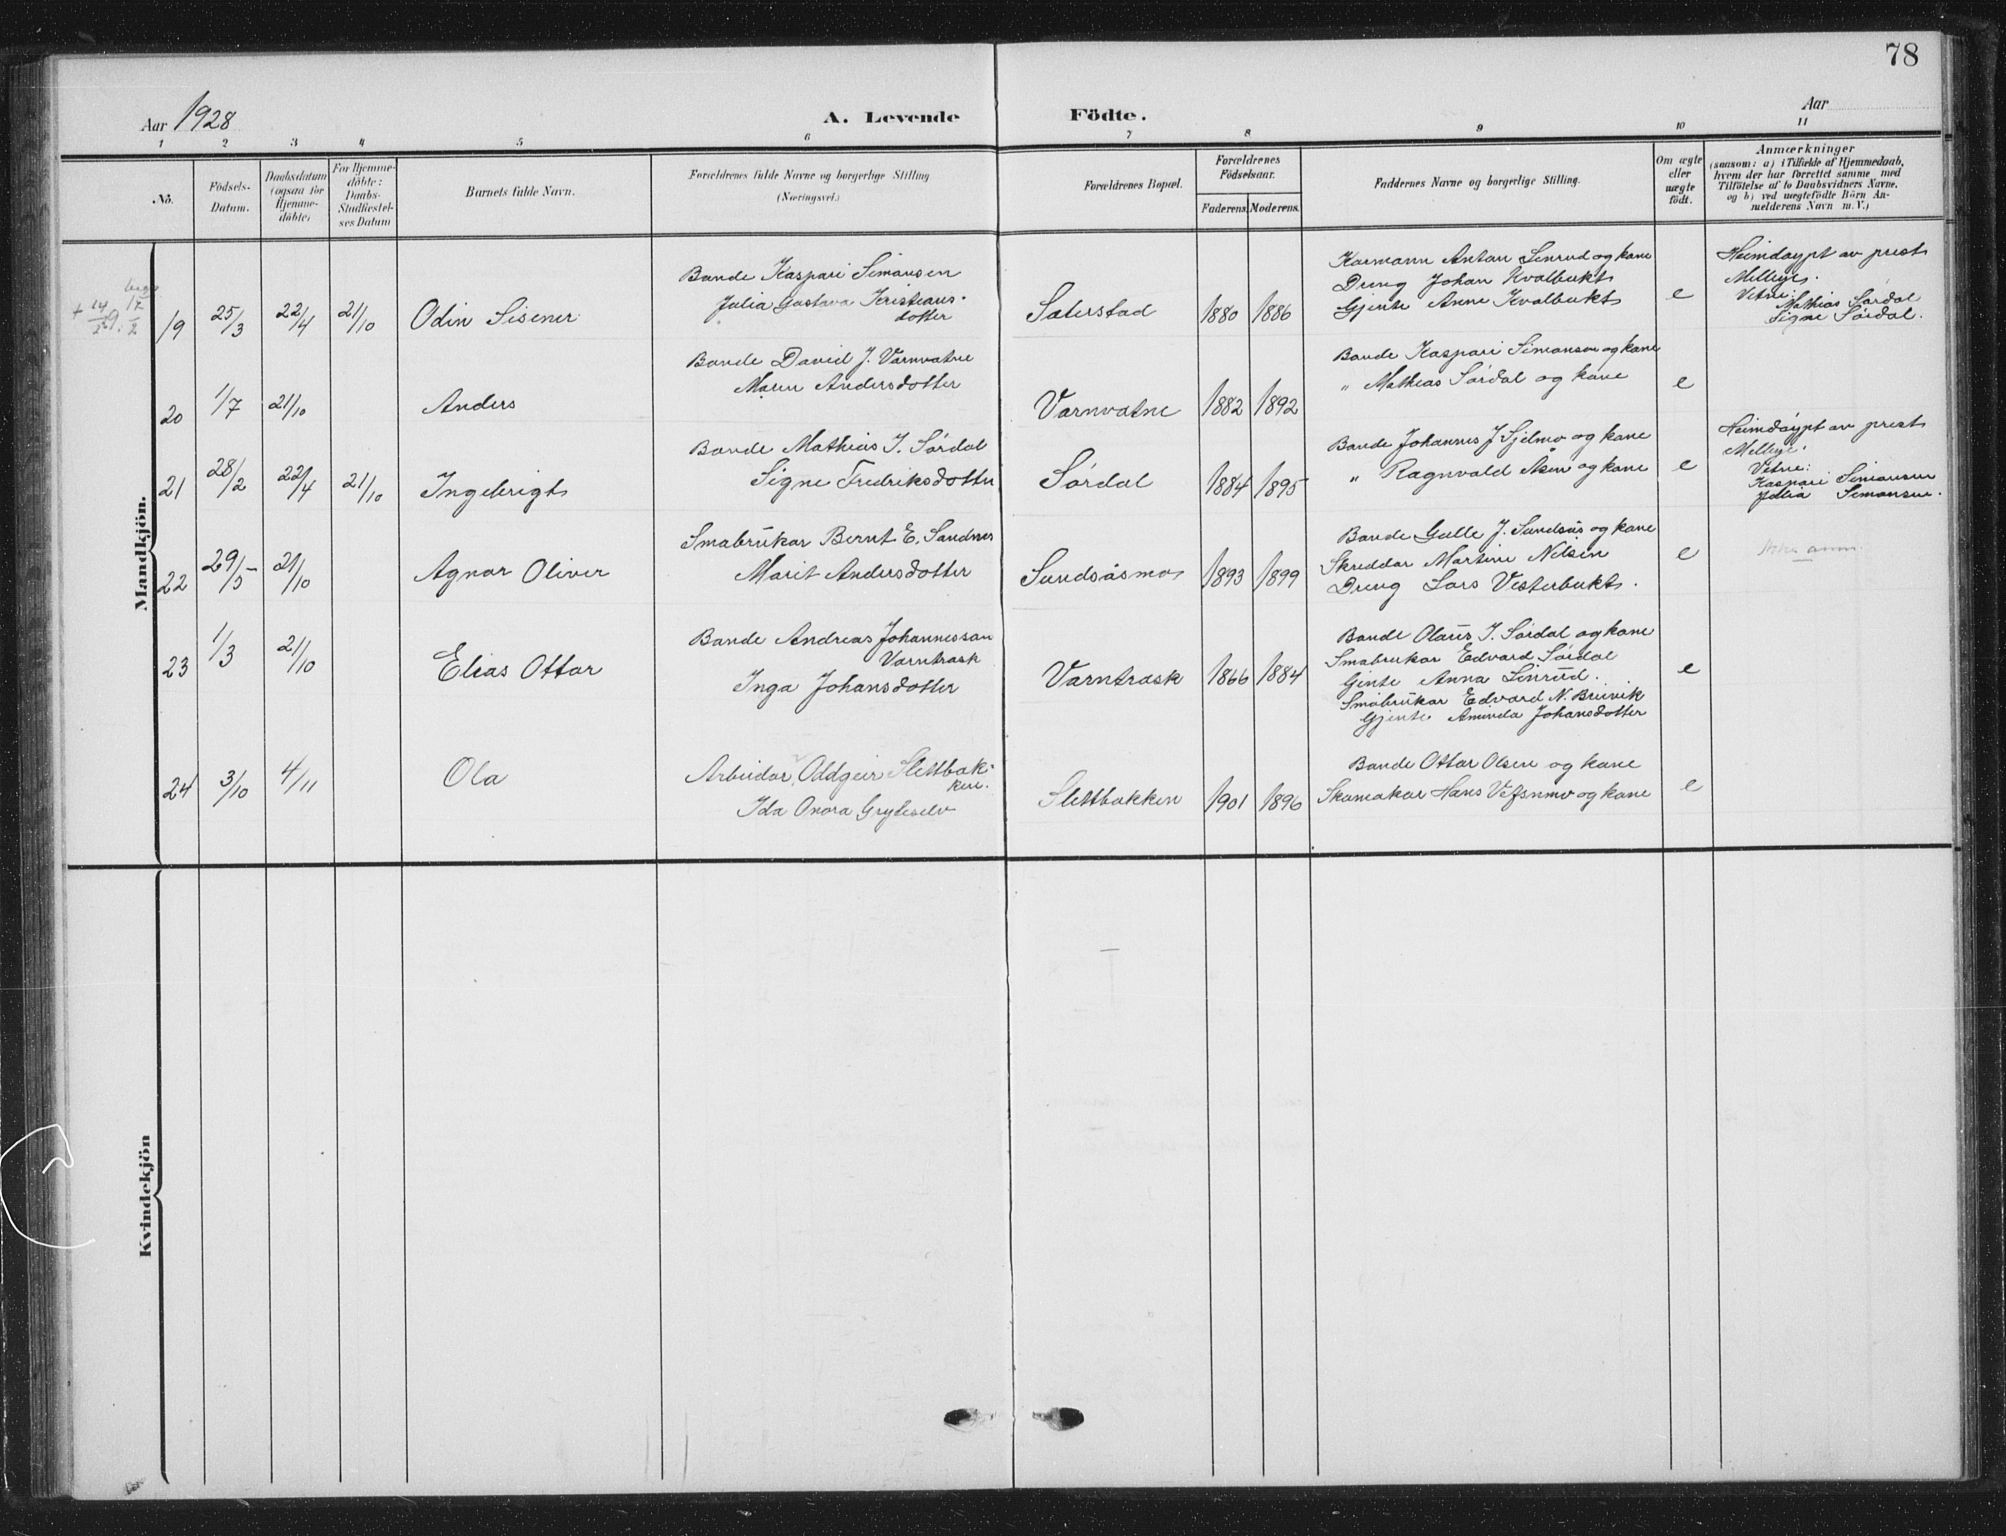 78
Aar 1928
A. Levende Födte.
Aar
1 2 3 4 5 6 7 8 9 10 11
No.
Födsels-
Datum.
Daabsdatum
(ogsaa for
Hjemme-
döbte)
For Hjemme-
döbte:
Daabs-
Stadfæstel-
ses Datum
Barnets fulde Navn.
Forældrenes fulde Navne og borgerlige Stilling
(Næringsvei.)
Forældrenes Bopæl.
Forældrenes
Födselsaar.
Faderens. Moderens.
Faddernes Navne og borgerlige Stilling.
Om ægte
eller
uægte
födt.
Anmærkninger
(saasom: a) i Tilfælde af Hjemmedaab,
hvem der har forrettet samme med
Tilföielse af to Daabsvidners Navne.
og b) ved uægtefödte Börn An-
melderens Navn m. V.)
Mandkjön.
19 25/3 22/4 21/10 Odin Sisener
Bonde Kaspari Simonsen
Julia Gustava Kristians-
dotter
Sæterstad 1880 1886
Karmann Anton Linrud og kone
Dreng Johan Kvalbukt
Gjente Anne Kvalbukt
e
Heimdøypt av prest
Millye.
Vitne:
Mathias Sørdal
Signe Sørdal.
20 1/7 21/10 Anders
Bonde David J. Varnvatne
Maren Andersdotter
Varnvatne 1882 1892
Bonde Kaspari Simonsen og kone
" Mathias Sørdal og kone
e
21 28/2 22/4 21/10 Ingebrigt
Bonde Mathias J. Sørdal
Signe Fredriksdotter
Sørdal 1884 1895
Bonde Johannes J Sjelmo og kone
" Ragnvald Åsen og kone
e
Heimdøypt av prest
Millye.
Vitne:
Kaspari Simonsen
Julia Simonsen.
22 29/5 21/10 Agnar Oliver
Småbrukar Bernt E. Sandnes
Marit Andersdotter
Sundsåsmo 1893 1899
Bonde Gulle J. Sundsås og kone
Skreddar Martin Nilsen
Dreng Lars Vesterbukt.
e
23 1/3 21/10 Elias Ottar
Bonde Andreas Johannesson
Varntrask
Inga Johansdotter
Varntrask 1866 1884
Bonde Olaus J. Sørdal og kone
Småbrukar Edvard Sørdal
Gjente Anna Linrud.
Småbrukar Edvard N. Breivik
Gjente Aminda Johansdotter
e
24 3/10 4/11 Ola
Arbeidar Oddgeir Slettbak-
ken.
Ida Onora Gryteselv
Slettbakken 1901 1896
Bonde Ottar Olsen og kone
Skomakar Hans Vefsnmo og kone
e
Kvindekjön